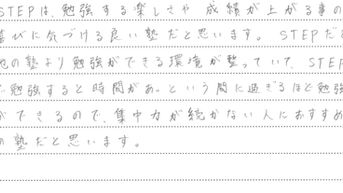 STEPは、勉強する楽しさや 成績が上がる事の
喜びに気づける良い塾だと思います。 STEPだと
他の塾より勉強ができる環境が整っていて、STEP
で勉強すると時間があっという間に過ぎるほど勉強
ができるので、集中力が続かない人におすすめ
の塾だと思います。